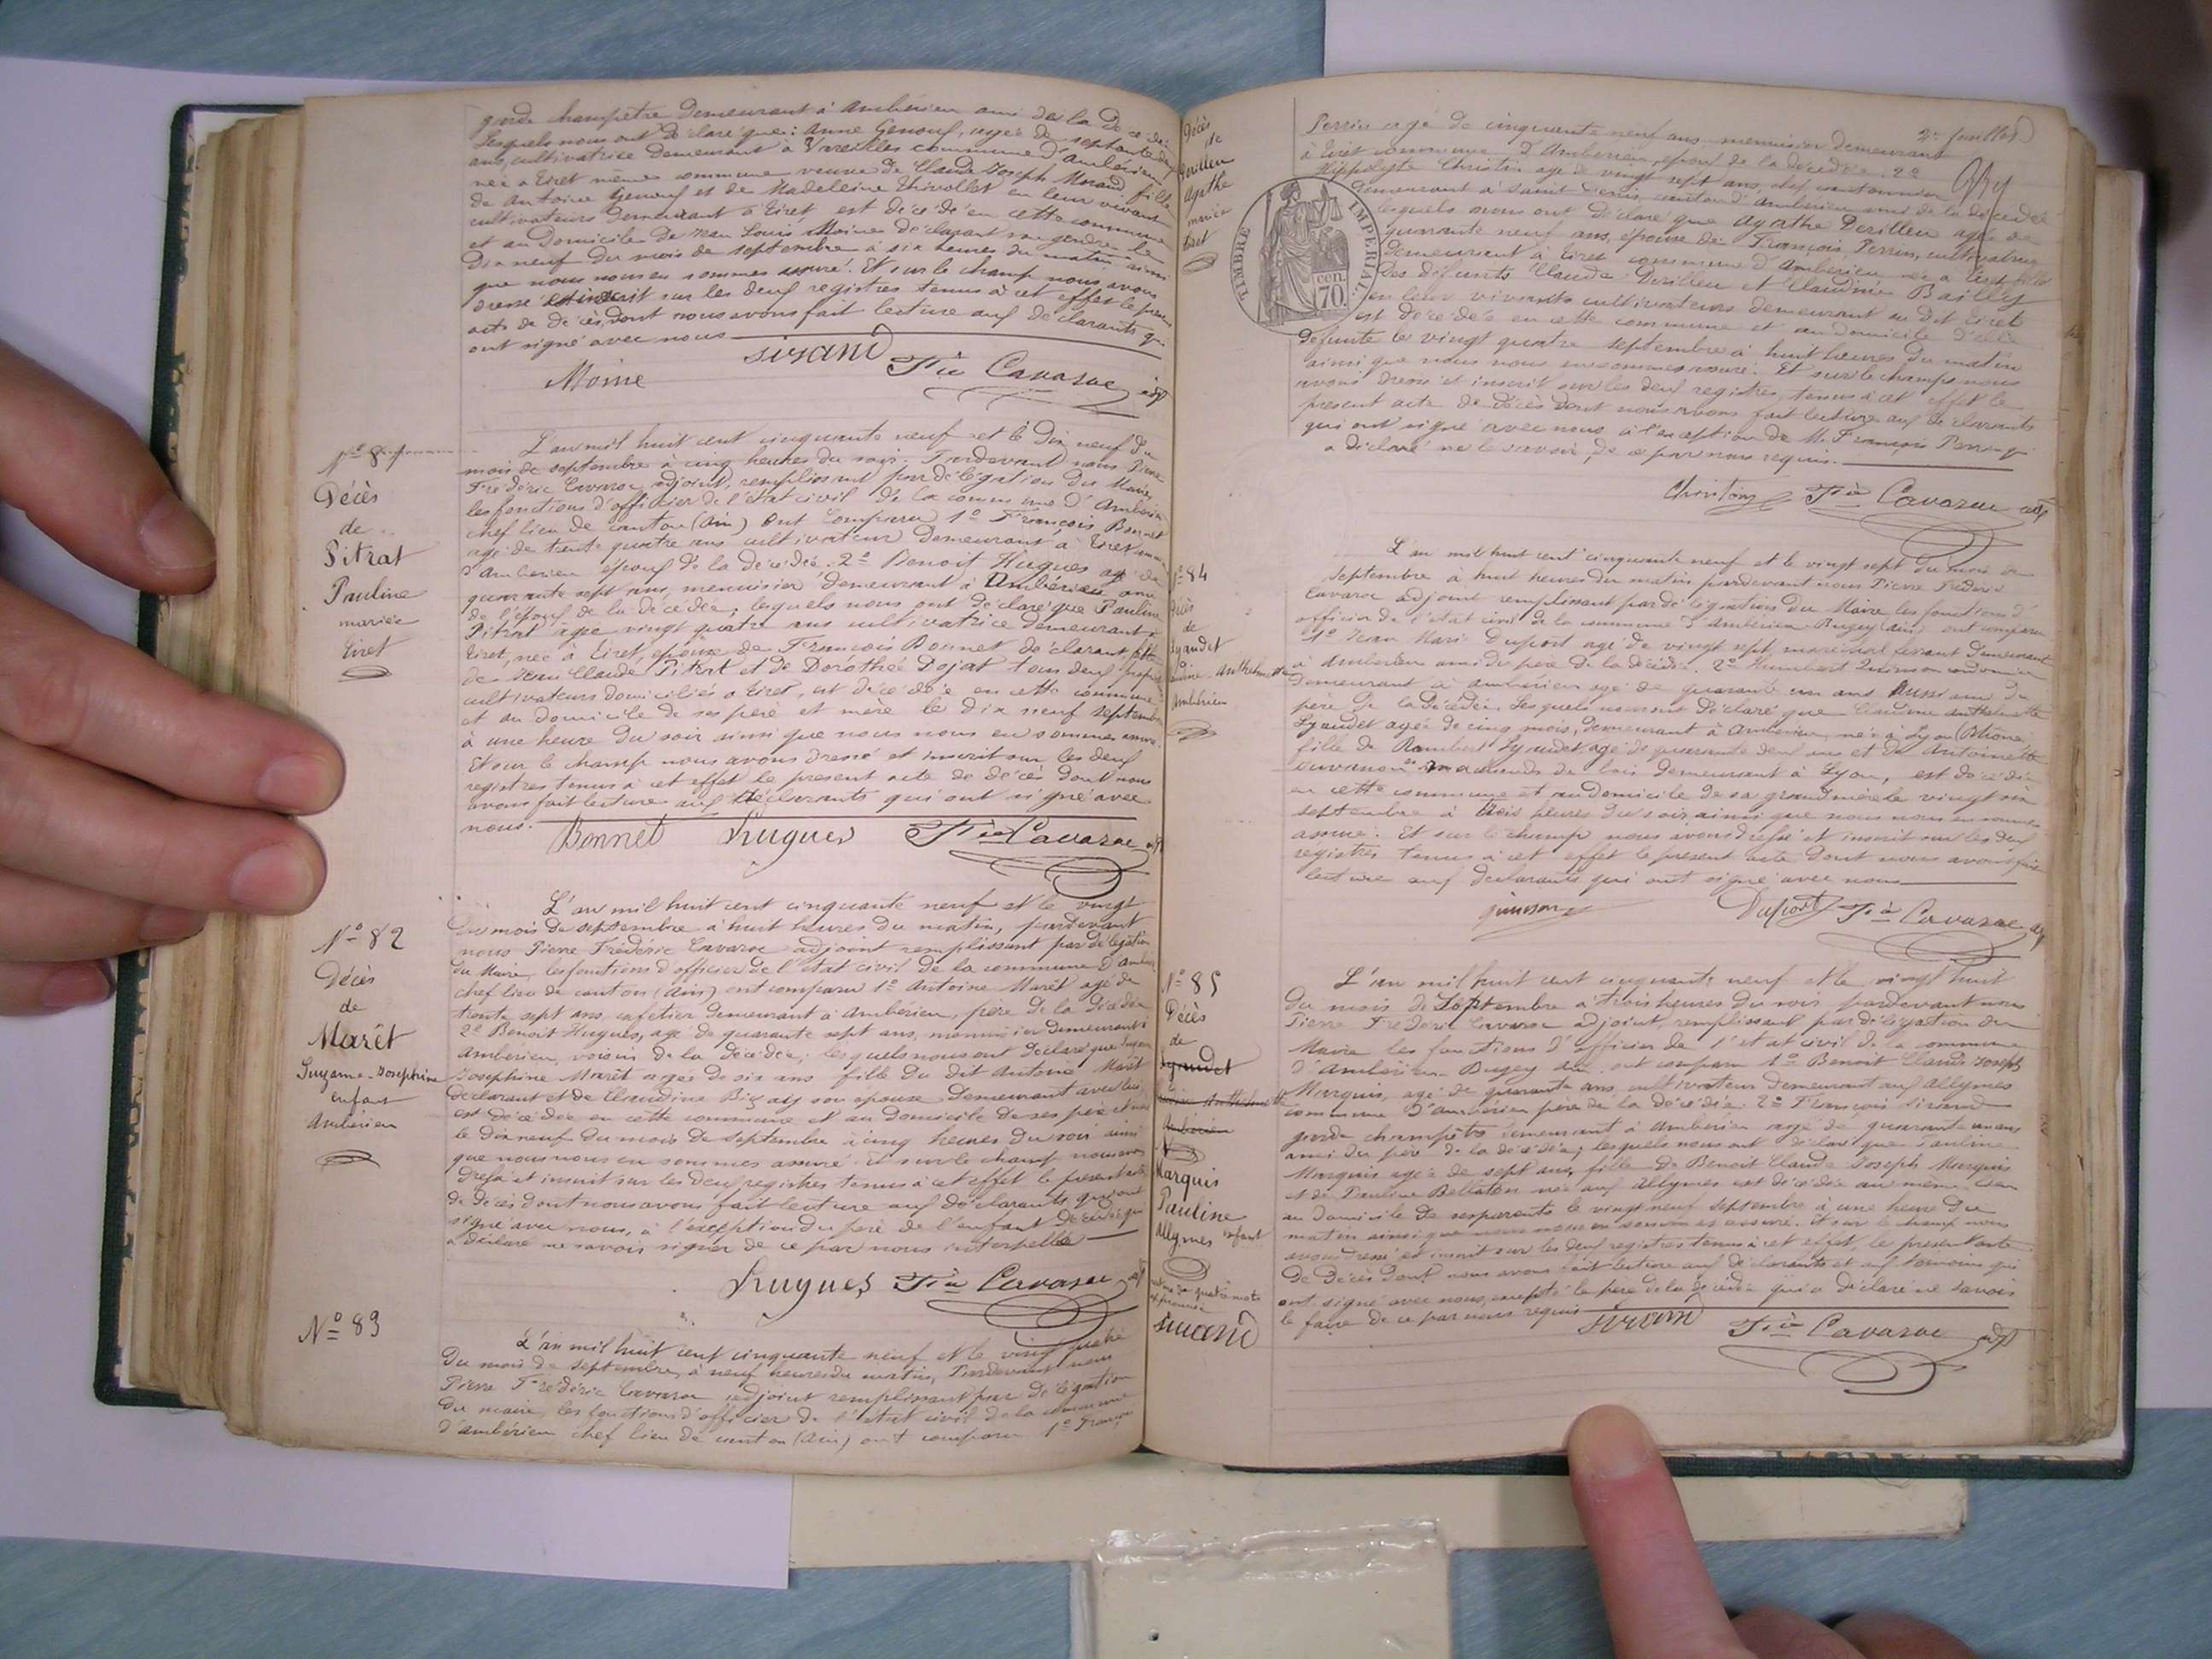 garde champêtre demeurant à Ambérieu ami de la décédée
Lesquels nous ont déclaré que : Anne Genouf, agée de septante
ans, cultivatrice demeurant à Vareilles commune d'Ambérieu
née à Tiret même commune veuve de Claude Joseph Morand fille
de Antoine Genouf et de Madeleine Thivollet en leur vivant
cultivateurs demeurant à Tiret est décédée en cette commune
et au domicile de Jean Louis Moine déclarant son gendre le
Dix neuf du mois de septembre à six heures du matin ainsi
que nous nous en sommes assuré. Et sur le champ nous avons
dressé et inscrit sur les deux registres tenus à cet effet le présent
acte de décès, dont nous avons fait lecture aux déclarants qui
ont signé avec nous
Moine sirand Fic Cavaroc adj
Décès
de
Pitrat
Pauline
mariée
Tiret
L'an mil huit cent cinquante neuf et le Dix neuf du
mois de septembre à cinq heures du soir. Pardevant nous Pierre
Frédéric Cavaroc adjoint, remplissant par délégation du Maire
les fonctions d'officier de l'état civil de la commune d'Ambérieu
chef lieu de canton (Ain) Ont Comparu 1º François Bonnet
agé de trente quatre ans cultivateur demeurant à Tiret
d'Ambérieu époux de la décédée. 2º Benoit Hugues agé de
quarante sept ans, menuisier demeurant à Ambérieu ami
de l'époux de la décédée ; lesquels nous ont déclaré que Pauline
Pitrat agée vingt quatre ans cultivatrice demeurant à
Tiret, née à Tiret épouse de François Bonnet déclarant, fille
de Jean Claude Pitrat et de Dorothée Dojat tous deux
cultivateurs domiciliés à Tiret, est décédée en cette commune
et au domicile de ses père et mère le dix neuf septembre
à une heure du soir ainsi que nous nous en sommes assuré.
Et sur le champ nous avons dressé et inscrit sur les deux
registres tenus à cet effet le présent acte de décès dont nous
avons fait lecture aux déclarants qui ont signé avec
nous.
Bonnet Hugues Fic Cavaroc adj
Nº 82
Décès
de
Marêt
Suzanne-Josephine
enfant
Ambérieu
L'an mil huit cent cinquante neuf et le vingt
du mois de septembre à huit heures du matin, pardevant
nous Pierre Frédéric Cavaroc adjoint remplissant par délégation
du Maire, les fonctions d'officier de l'état civil de la commune d'Ambérieu
chef lieu de canton (Ain) ont comparu 1º Antoine Marêt agé de
trente sept ans, cafetier demeurant à Ambérieu, père de la décédée
2º Benoit Hugues, agé de quarante sept ans, menuisier demeurant à
Ambérieu, voisin de la décédée ; lesquels nous ont déclaré que
Josephine Marêt agée de six ans fille du dit Antoine Marêt
déclarant et de Claudine son épouse demeurant avec lui,
est décédée en cette commune et au domicile de ses père et mère
le dix neuf du mois de septembre à cinq heures du soir ainsi
que nous nous en sommes assuré. Et sur le champ nous avons
dressé et inscrit sur les deux registres tenus à cet effet le présent acte
de décès dont nous avons fait lecture aux déclarants qui ont
signé avec nous, à l'exception du père de l'enfant décédé qui
a déclaré ne savoir signer de ce par nous interpellé
Hugues Fic Cavaroc adj
Nº 83
L'an mil huit cent cinquante neuf et le vingt quatre
du mois de septembre, à neuf heures du matin, Pardevant nous
Pierre Frédéric Cavaroc adjoint remplissant par délégation
du maire, les fonctions d'officier de l'état civil de la commune
d'Ambérieu chef lieu de canton (Ain) ont comparu 1º François
Décès
de
Derilleu
Agathe
mariée
Tiret
TIMBRE IMPERIAL.
70 cen.
Perrin agé de cinquante neuf ans, menuisier demeurant
à Tiret commune d'Ambérieu, époux de la décédée. 2º
Hippolyte Christin agé de vingt sept ans, chef cantonnier
demeurant à Saint Denis, canton d'Ambérieu ami de la décédée
lesquels nous ont déclaré que Agathe Derilleu agée de
quarante neuf ans, épouse de François Perrin, cultivatrice
demeurant à Tiret commune d'Ambérieu née à Tiret fille
des défunts Claude Derilleu et Claudine Bailly
en leur vivants cultivateurs demeurant au dit Tiret
est décédée en cette commune et au domicile d'elle
défunte le vingt quatre septembre à huit heures du matin
ainsi que nous nous en sommes assuré. Et sur le champ nous
avons dressé et inscrit sur les deux registres, tenus à cet effet le
présent acte de décès dont nous avons fait lecture aux déclarants
qui ont signé avec nous à l'exception de M. François Perrin qui
a déclaré ne le savoir, de ce par nous requis.
Christin Fic Cavaroc adj
Nº 84
Décès
de
Lyaudet
Anthelmette
Ambérieu
L'an mil huit cent cinquante neuf et le vingt sept du mois de
septembre à huit heures du matin pardevant nous Pierre Frédéric
Cavaroc adjoint remplissant par délégation du Maire les fonctions d'
officier de l'état civil de la commune d'Ambérieu-Bugey (Ain) ont comparu
1º Jean Marie Dupont agé de vingt sept, maréchal ferrant demeurant
à Ambérieu ami du père de la décédée. 2º Humbert Quinson cordonnier
demeurant à Ambérieu agé de quarante un ans aussi ami du
père de la décédée. Lesquels nous ont déclaré que Claudine Anthelmette
Lyaudet agée de cinq mois, demeurant à Ambérieu, née à Lyon (Rhône)
fille de Rambert Lyaudet agé de quarante deux ans et de Antoinette
marchands de bois demeurant à Lyon, est décédée
en cette commune et au domicile de sa grand'mère le vingt six
septembre à trois heures du soir ainsi que nous nous en sommes
assuré. Et sur le champ nous avons dressé et inscrit sur les deux
registres tenus à cet effet le présent acte dont nous avons fait
lecture aux déclarants qui ont signé avec nous
quinson Dupont Fic Cavaroc adj
Nº 85
Décès
de
Lyaudet
Anthelmette
Ambérieu
Marquis
Pauline
Allymes enfant
sirand
L'an mil huit cent cinquante neuf et le vingt huit
du mois de Septembre à trois heures du soir pardevant nous
Pierre Frédéric Cavaroc adjoint, remplissant par délégation du
Maire les fonctions d'officier de l'état civil de la commune
d'Ambérieu-Bugey Ain ont comparu 1º Benoit Claude Joseph
Marquis, agé de quarante ans, cultivateur demeurant aux Allymes
commune d'Ambérieu père de la décédée. 2º François Sirand
garde champêtre demeurant à Ambérieu agé de quarante un ans
ami du père de la décédée ; lesquels nous ont déclaré que Pauline
Marquis agée de sept ans, fille de Benoit Claude Joseph Marquis
et de Pauline Bellaton née aux Allymes est décédée au même lieu
au domicile de ses parents le vingt neuf septembre à une heure du
matin ainsi que nous nous en sommes assuré. Et sur le champ nous
avons dressé et inscrit sur les deux registres tenus à cet effet, le présent acte
de décès dont nous avons fait lecture aux déclarants et aux témoins qui
ont signé avec nous, excepté le père de la décédée qui a déclaré ne savoir
le faire de ce par nous requis
sirand Fic Cavaroc adj